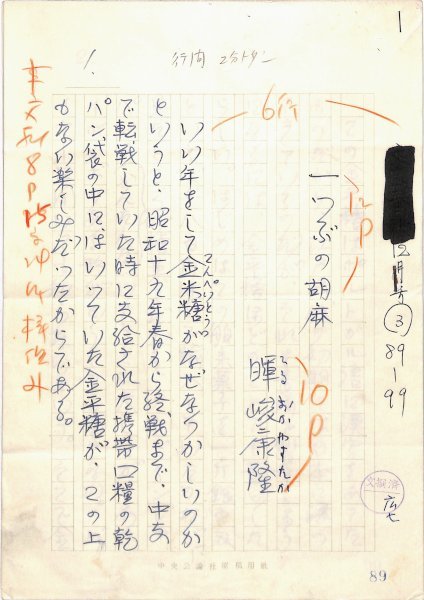 1
12月号 ③ 89-99
行間 2分トタン
1.
6行
一つぶの胡麻
12P
暉峻康隆
てるおかやすたか
10P
いい年をして金米糖がなぜなつかしいのか
こんぺいとう
というと、昭和十九年春から終戦まで、中支
で転戦していた時に支給された携帯口糧の乾
パン袋の中にはいっていた金平糖が、この上
もない楽しみだったからである。
本文
8P
済
広七
中央公論社原稿用紙
89